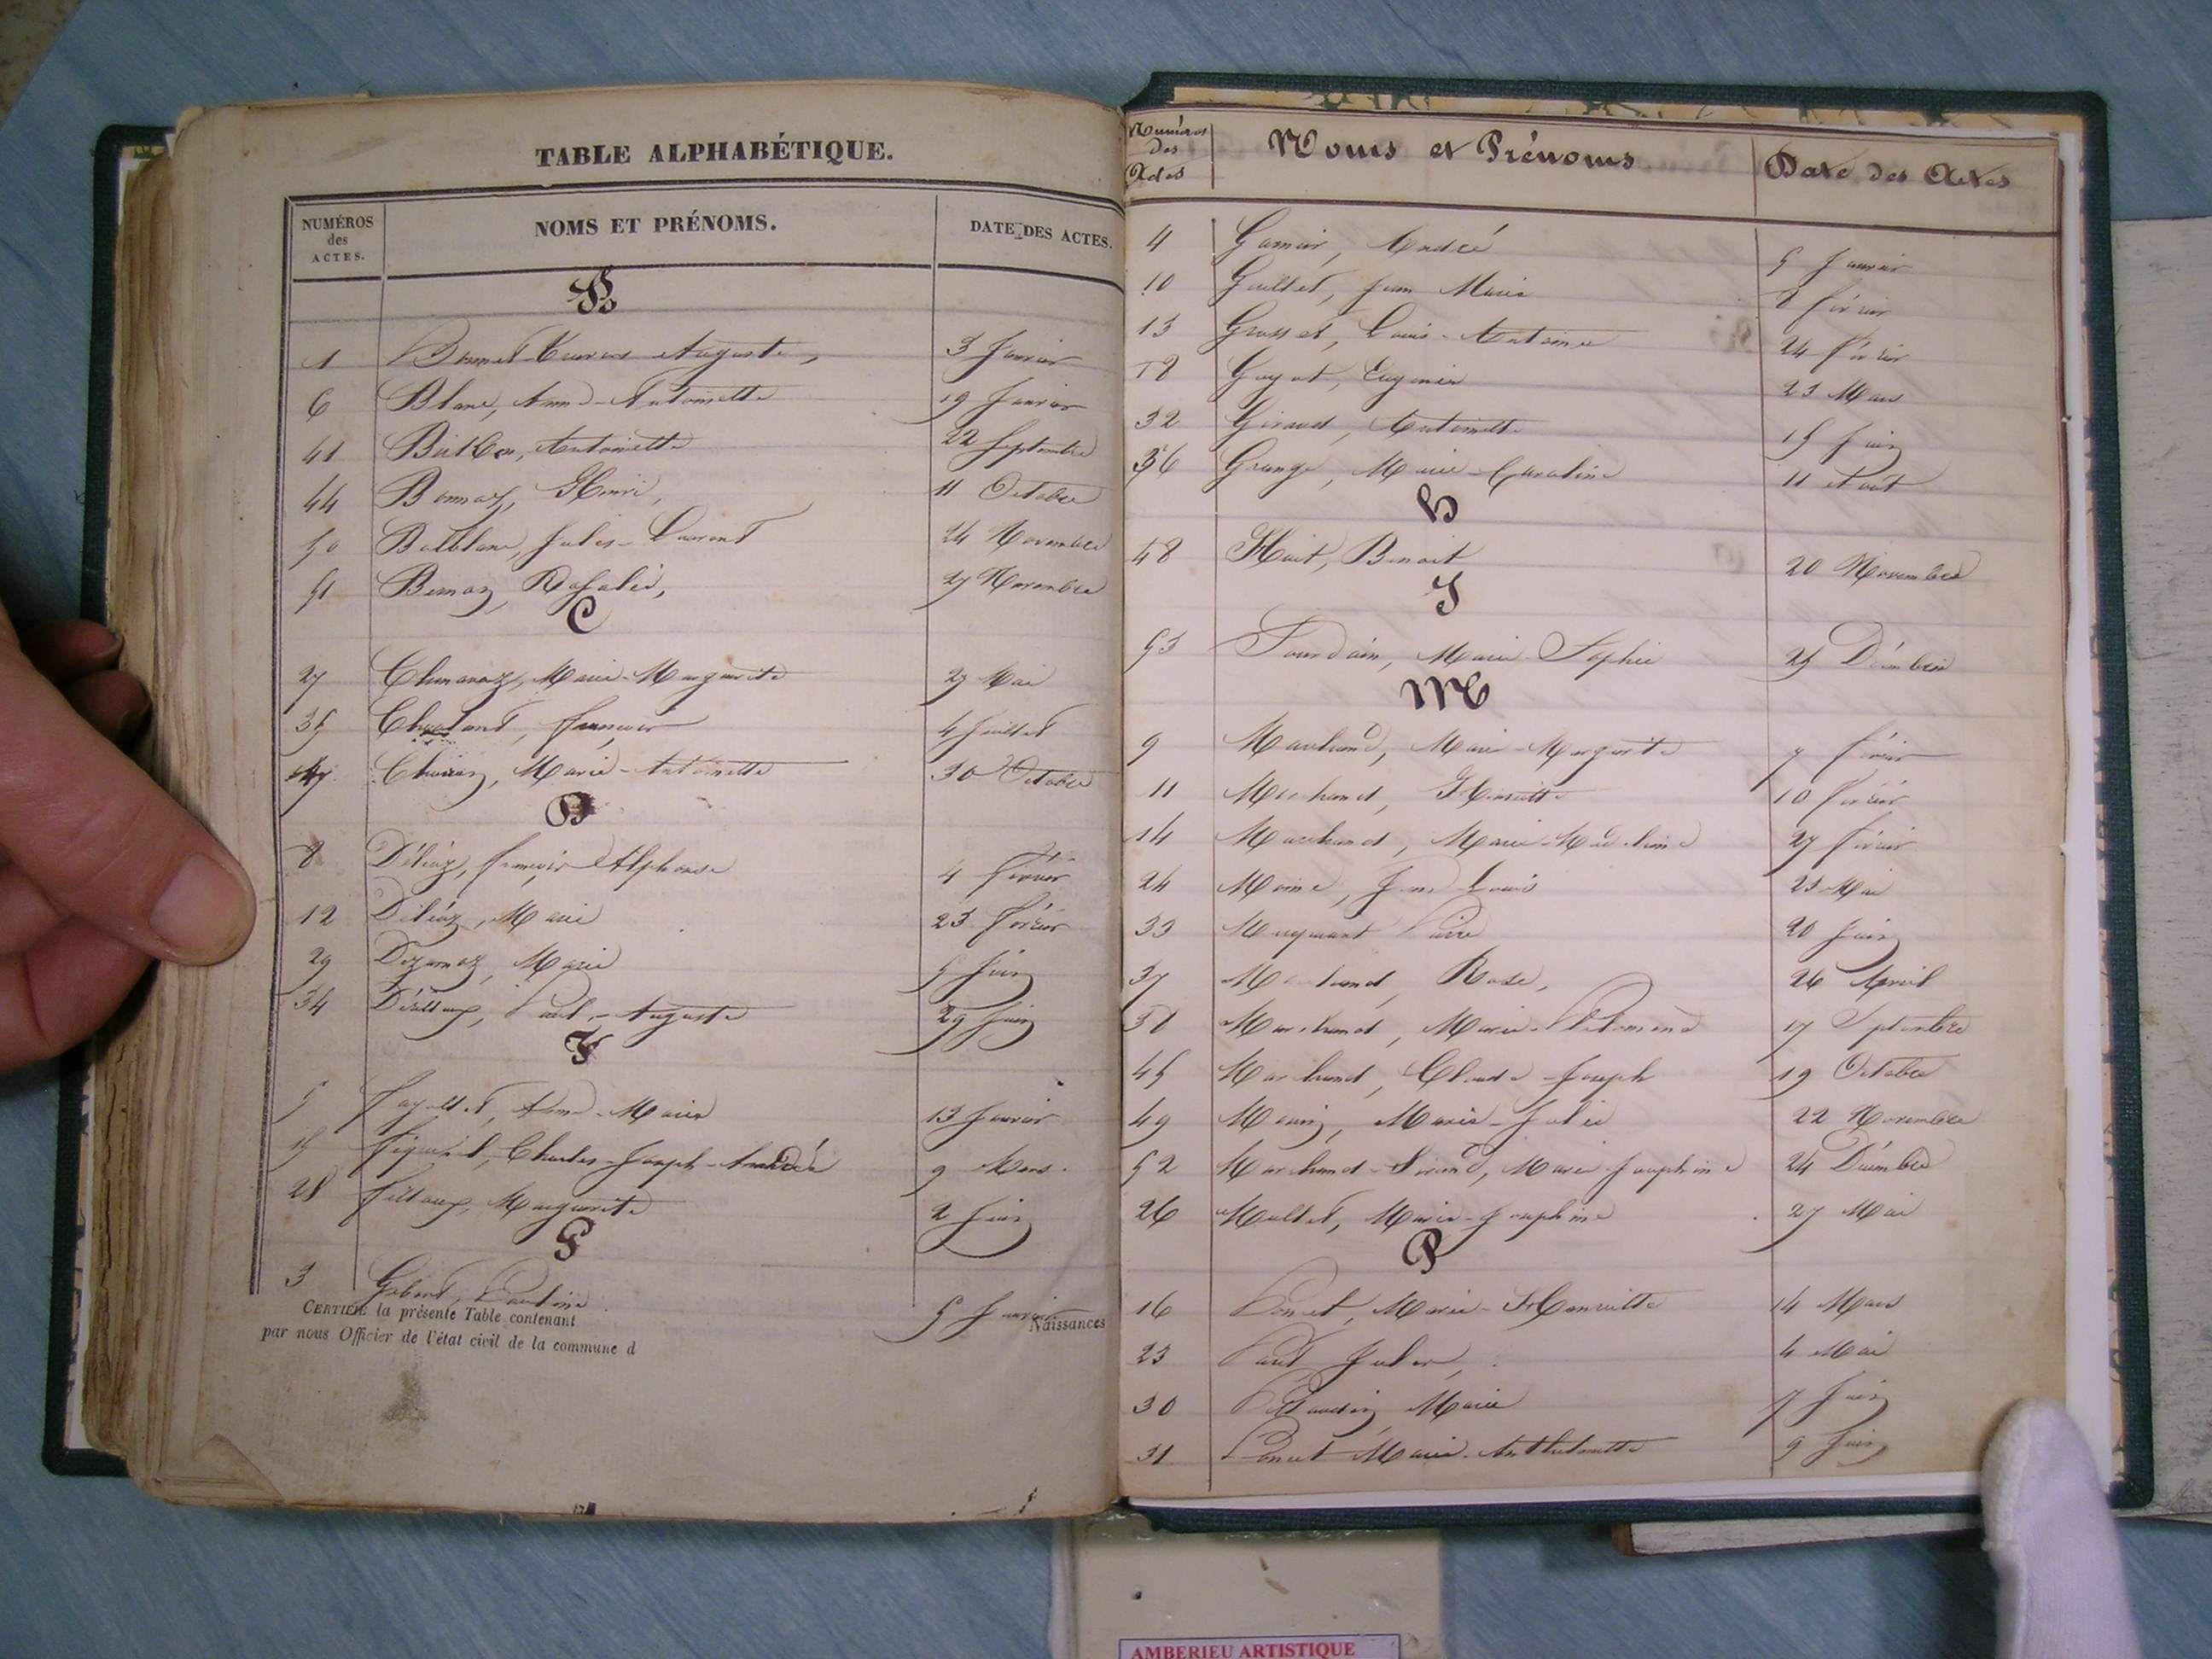 TABLE ALPHABÉTIQUE.
NUMÉROS des ACTES. NOMS ET PRÉNOMS. DATE DES ACTES.
B
1 Auguste, 3 Janvier
6 Blanc, Anne-Antoinette 19 Janvier
41 Antoinette 22 Septembre
44 Bonnaz, Henri, 11 Octobre
50 Bolblanc, Jules-Laurent 24 Novembre
51 Bernaz, Rosalie, 27 Novembre
C
27 Chanavaz, Marie-Marguerite 29 Mai
35 François 4 Juillet
47 Marie-Antoinette 30 Octobre
D
8 Déléaz, François Alphonse 4 Février
12 Déléaz, Marie 23 Février
29 Marie 5 Juin
34 Paul-Auguste 29 Juin
F
5 Anne-Marie 13 Janvier
15 Charles-Joseph-Amédée 9 Mars.
28 Marguerite 2 Juin
G
3 5 Janvier
CERTIFIÉ la présente Table contenant Naissances
par nous Officier de l'état civil de la commune d
Numéros des Actes Noms et Prénoms Date des Actes
4 Garnier, André 5 Janvier
10 Jean Marie 8 Février
13 Grosset, Louis-Antoine 24 Février
18 Guyot, Eugénie 23 Mars
32 Giraud, Antoinette 15 Juin
36 Grange, Marie-Caroline 11 Août
H
48 Huit, Benoit 20 Novembre
J
53 Jourdain, Marie-Sophie 25 Décembre
M
9 Marchand, Marie-Marguerite 7 Février
11 Marchand, Henriette 10 Février
14 Marchand, Marie-Madeleine 27 Février
24 Moine, Jean-Louis 23 Mai
33 Pierre 20 Juin
37 Marchand, Rose, 26 Avril
38 Marchand, Marie-Philomène 17 Septembre
45 Marchand, Claude-Joseph 19 Octobre
49 Marie-Julie 22 Novembre
52 Marchand- Marie-Josephine 24 Décembre
26 Mollet, Marie-Josephine 27 Mai
P
16 Poncet, Marie-Henriette 14 Mars
23 4 Mai
30 Marie 7 Juin
31 Poncet Marie 9 Juin
AMBERIEU ARTISTIQUE